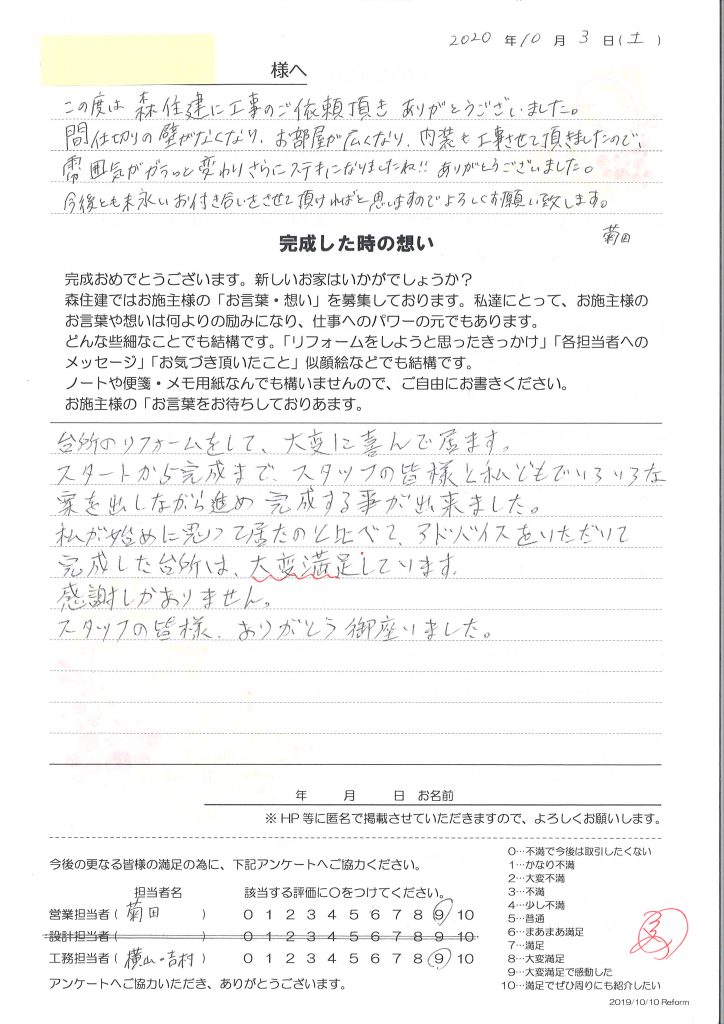 2020 年 10 月 3 日(土)
様へ
この度は 森住建に工事のご依頼頂き ありがとうございました。
間仕切りの壁がなくなり、お部屋が広くなり、内装も工事させて頂きましたので、
雰囲気がガラっと変わりさらにステキになりましたね!! ありがとうございました。
今後とも末永いお付き合いをさせて頂ければと思いますのでよろしくお願い致します。
菊田
完成した時の想い
完成おめでとうございます。新しいお家はいかがでしょうか？
森住建ではお施主様の「お言葉・想い」を募集しております。私達にとって、お施主様の
お言葉や想いは何よりの励みになり、仕事へのパワーの元でもあります。
どんな些細なことでも結構です。「リフォームをしようと思ったきっかけ」「各担当者への
メッセージ」「お気づき頂いたこと」似顔絵などでも結構です。
ノートや便箋・メモ用紙なんでも構いませんので、ご自由にお書きください。
お施主様の「お言葉をお待ちしておりあます。
台所のリフォームをして、大変に喜んで居ます。
スタートから完成まで、スタッフの皆様と私どもでいろいろな
案を出しながら進め 完成する事が出来ました。
私が始めに思って居たのと比べて、アドバイスをいただいて
完成した台所は、大変満足しています。
感謝しかありません。
スタッフの皆様、ありがとう御座いました。
年 月 日 お名前
※HP 等に匿名で掲載させていただきますので、よろしくお願いします。
今後の更なる皆様の満足の為に、下記アンケートへご協力ください。
担当者名 該当する評価に○をつけてください。
営業担当者( 菊田 ) 0 1 2 3 4 5 6 7 8 9 10
設計担当者( ) 0 1 2 3 4 5 6 7 8 9 10
工務担当者( 横山・吉村 ) 0 1 2 3 4 5 6 7 8 9 10
アンケートへご協力いただき、ありがとうございます。
0…不満で今後は取引したくない
1…かなり不満
2…大変不満
3…不満
4…少し不満
5…普通
6…まあまあ満足
7…満足
8…大変満足
9…大変満足で感動した
10…満足でぜひ周りにも紹介したい
2019/10/10 Reform